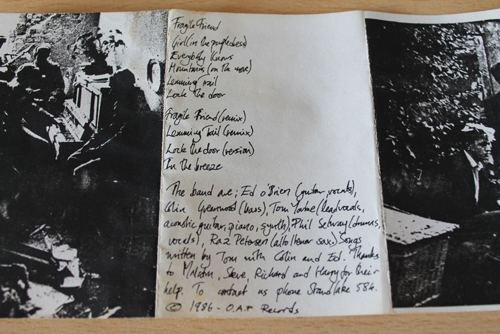 Fragile Friend
Girl (in the purple dress)
Everybody Knows
Mountains (on the move)
Lemming Trail
Lock the door
Fragile Friend (remix)
Lemming Trail (remix)
Lock the door (version)
In the breeze
The band are; Ed O'Brien (guitar, vocals),
Colin Greenwood (bass), Tom Yorke (lead vocals,
acoustic guitar, piano, synth), Phil Selway (drums,
vocals), Raz Peterson (alto/tenor sax). Songs
written by Tom with Colin and Ed. Thanks
to Malcolm, Steve, Richard and Harry for their
help. To contact us phone Standlake 584.
© 1986 - O.A.P Records